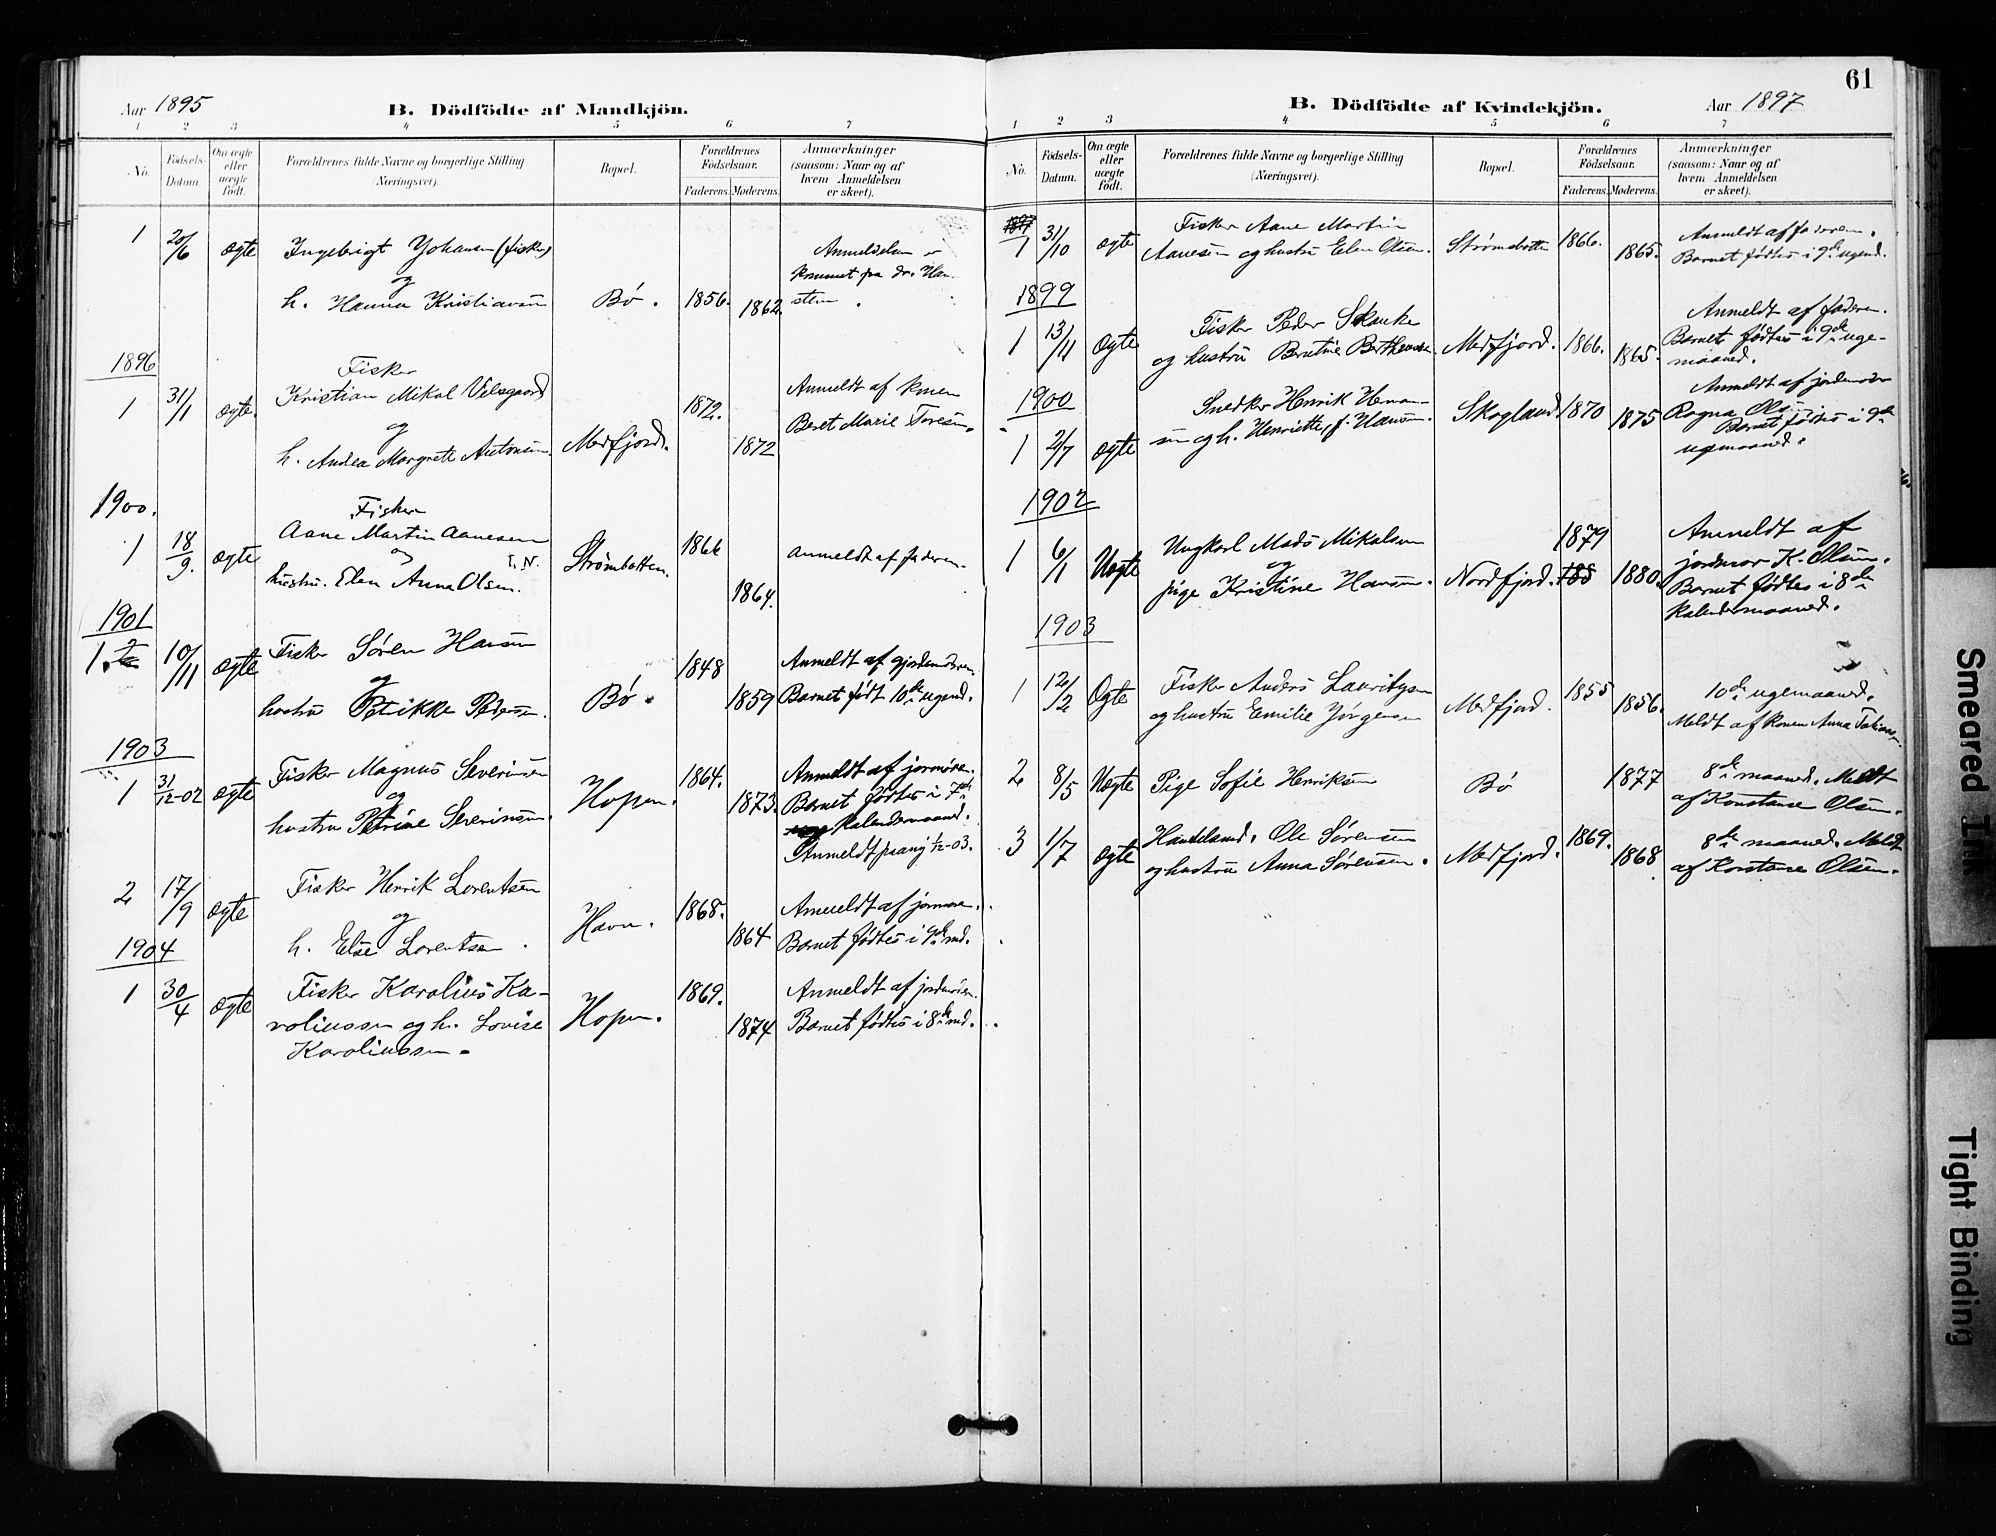 Aar 1895
B. Dödfödte af Mandkjön.
1 2 3 4 5 6 7
No. Födsels-Datum. Om ægte eller uægte födt. Forældrenes fulde Navne og borgerlige Stilling (Næringsvei). Bopæl. Forældrenes Födselsaar. Faderens. Moderens. Anmærkninger (saasom: Naar og af hvem Anmeldelsen er skeet).
1 20/6 ægte Ingebrigt Johansen (fisker)
og
h. Hanna Kristiansen Bø. 1856. 1862.
1896
1 31/1 ægte. Fisker
Kristian Mikal
og
h. Andea Margrete Antonsen Medfjord. 1872. 1872
Anmeldt af konen
Beret Marie Toresen.
1900.
1 18/9. ægte Fisker
Aane Martin Aanesen
og
hustru. Elen Anna Olsen. Strømbotten. 1866 1864.
Anmeldt af faderen.
1901
1. 10/11 ægte Fisker Søren Hansen
og
hustru Petrikke Pedersen. Bø. 1848 1859
Anmeldt af gjordemoderen
Barnet født 10de ugend.
1903
1 31/12-02 ægte Fisker Magnus Severinsen
og
hustru Petrine Severinsen. Hopen. 1864. 1873.
Anmeldt af jormoren.
Barnet fødtes i 7de
Kalendermaaned.
Anmeldt 1/2-03.
2 17/9 ægte Fisker Henrik Lorentsen
og
h. Else Lorentsen. Havn. 1868. 1864
Anmeldt af jormoren.
Barnet fødtes i 9de md.
1904
1 30/4 ægte Fisker Karolius Ka-
roliussen og h. Lovise
Karoliussen. Hopen. 1869. 1874
Anmeldt af jordmoren.
Barnet fødtes i 8de md.
61
B. Dödfödte af Kvindekjön.
Aar 1897
1 2 3 4 5 6 7
No. Födsels-Datum. Om ægte eller uægte födt. Forældrenes fulde Navne og borgerlige Stilling (Næringsvei). Bopæl. Forældrenes Födselsaar. Faderens. Moderens. Anmærkninger (saasom: Naar og af hvem Anmeldelsen er skeet).
1897
1 31/10 ægte Fisker Aane Martin
Aanesen og hustru Elen Olsen. Strømsbotten 1866. 1865.
Anmeldt af faderen.
Barnet fødtes i 9de ugend.
1899
1 13/11 ægte Fisker Peder Skanke
og hustru Medfjord. 1866. 1865.
Anmeldt af faderen.
Barnet fødtes i 9de uge-
maaned.
1900
1 2/7 ægte Snedker Henrik
og h. Henriette, f. Hansen. Skogland. 1870 1875
Anmeldt af jordmoder
Ragna Olsen.
Barnet fødtes i 9de
ugemaaned.
1902
1 6/1 Uægte Ungkarl Mads Mikalsen
og
pige Kristine Hansen. Nordfjord. 1879 188 1880.
Anmeldt af
jordmor K. Olsen.
Barnet fødtes i 8de
Kalendermaaned.
1903
1 12/2 Ægte Fisker Anders Lauritsen
og hustru Emilie Jørgensen Medfjord. 1855 1856.
10de ugemaaned.
Meldt af konen Anna
2 8/5 Uægte Pige Sofie Henriksen Bø 1877
8de maaned. Meldt
af Konstanse Olsen.
3 1/7 ægte Handelsmd. Ole Sørensen
og hustru Anna Sørensen. Medfjord. 1869. 1868
8de maaned. Meldt
af Konstanse Olsen.
Smeared Ink
Tight Binding